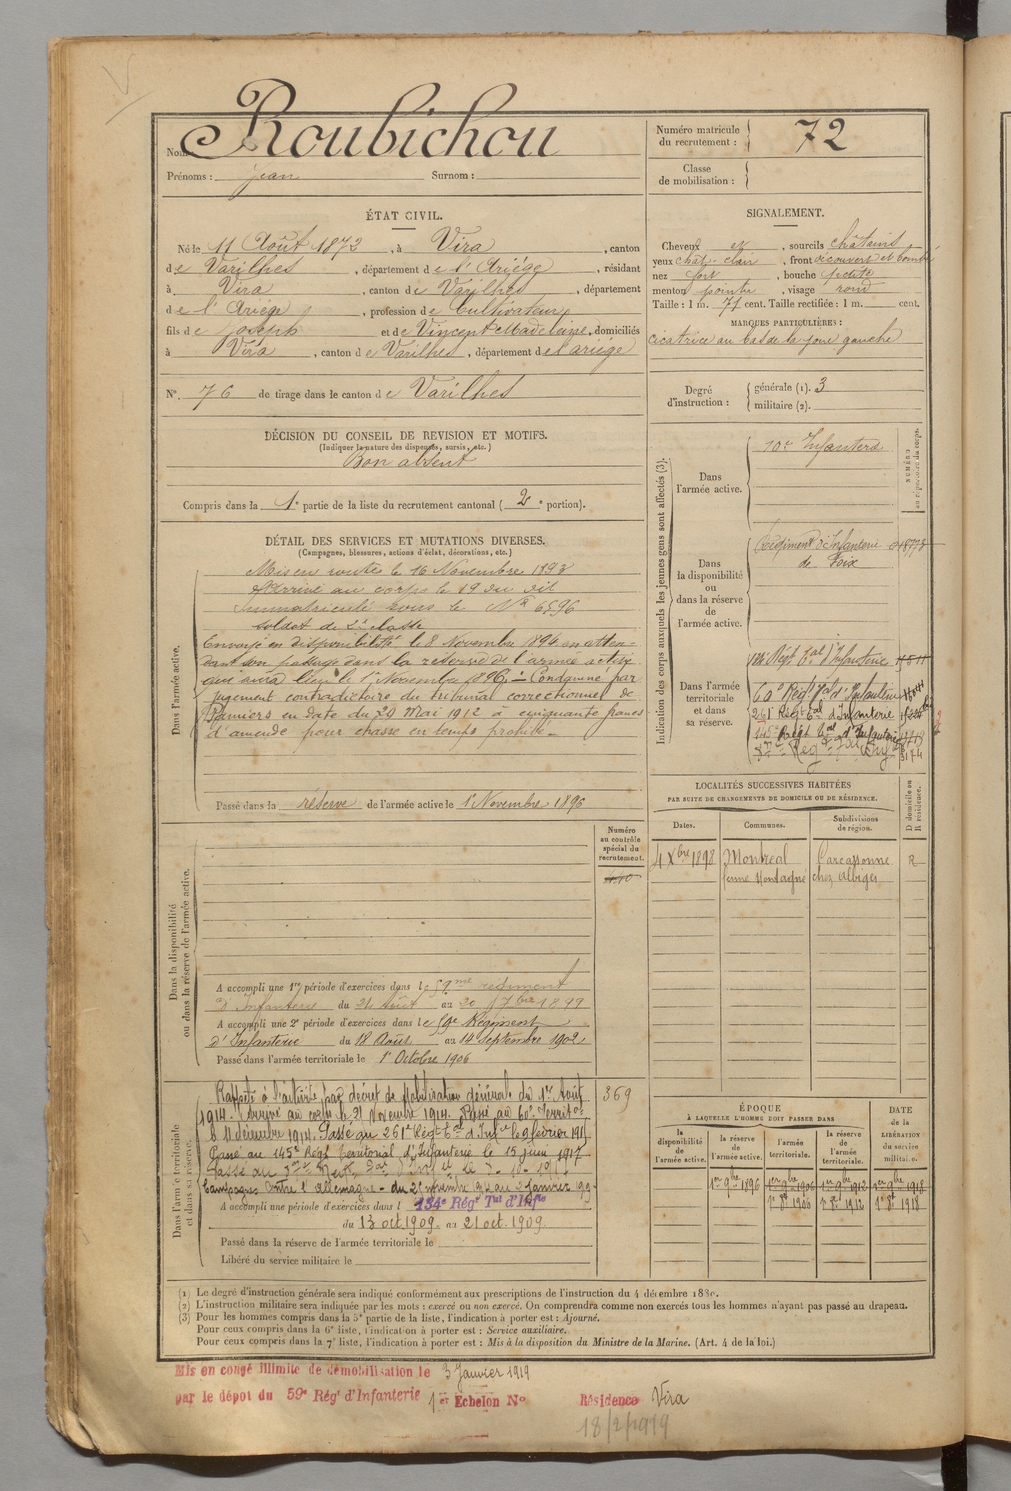 Nom : Roubichou
Prénoms : jean Surnom :
Numéro matricule du recrutement : 72
Classe de mobilisation :
ÉTAT CIVIL.
Né le 11 Août 1872, à Vira, canton
de Varilhes, département de l'Ariége, résidant
à Vira, canton de Varilhes, département
de l'Ariége, profession de Cultivateur
fils de Joseph et de Vincent Madeleine, domiciliés
à Vira, canton de Varilhes, département de l'ariége
N° 76 de tirage dans le canton de Varilhes
SIGNALEMENT.
Cheveux et, sourcils châtains
yeux chât. clair, front découvert et bombé
nez fort, bouche petite
menton pointu, visage rond
Taille : 1 m. 71 cent. Taille rectifiée : 1 m. cent.
MARQUES PARTICULIÈRES :
cicatrice au bas de la joue gauche
Degré d'instruction : générale (1). 3
militaire (2).
DÉCISION DU CONSEIL DE REVISION ET MOTIFS.
(Indiquer la nature des dispenses, sursis, etc.)
Bon absent
Compris dans la 1e partie de la liste du recrutement cantonal (2e portion).
DÉTAIL DES SERVICES ET MUTATIONS DIVERSES.
(Campagnes, blessures, actions d'éclat, décorations, etc.)
Dans l'armée active.
Mis en route le 16 Novembre 1893
Arrivé au corps le 19 du dit
Immatriculé sous le N° 6596
soldat de 2e classe
Envoyé en disponibilité le 8 Novembre 1894 en atten-
dant son passage dans la réserve de l'armée active
qui aura lieu le 1er Novembre 1896. Condamné par
jugement contradictoire du tribunal correctionnel de
Pamiers en date du 29 Mai 1912 à cinquante francs
d'amende pour chasse en temps prohibé
Passé dans la réserve de l'armée active le 1er Novembre 1896
Indication des corps auxquels les jeunes gens sont affectés (3).
NUMÉRO au répertoire du corps.
Dans l'armée active.
Infanterie
Dans la disponibilité ou dans la réserve de l'armée active.
Régiment d'Infanterie
de Foix
Dans l'armée territoriale et dans sa réserve.
Régt Tal d'Infanterie
60e Régt Tal d'Infanterie
261e Régt Tal d'Infanterie
145e Régt Tal d'Infanterie
LOCALITÉS SUCCESSIVES HABITÉES
PAR SUITE DE CHANGEMENTS DE DOMICILE OU DE RÉSIDENCE.
Dates. Communes. Subdivisions de région. D domicile ou R résidence.
4 Xbre 1898 Montréal Carcassonne R
ferme Montagné chez Albigès
Numéro au contrôle spécial du recrutement.
Dans la disponibilité ou dans la réserve de l'armée active.
A accompli une 1re période d'exercices dans le 59me régiment
d'Infanterie du 24 Août au 20 7bre 1899
A accompli une 2e période d'exercices dans le 59e Régiment
d'Infanterie du 18 Août au 14 septembre 1902
Passé dans l'armée territoriale le 1er Octobre 1906
Dans l'armée territoriale et dans sa réserve.
369
Rappelé à l'activité par décret de Mobilisation générale du 1er Août
1914. Arrivé au corps le 21 Novembre 1914. Passé au 60e Territo-
11 décembre 1914. Passé au 261e Régt Tal d'Infie le 9 février 191
Passé au 145e Régt territorial d'Infanterie le 15 juin 1917
Passé au
Campagnes contre l'Allemagne - du 21 novembre 1914 au 3 janvier 1919
A accompli une période d'exercices dans l 134e Régt Tal d'Infie
du 13 oct. 1909. au 21 oct. 1909.
Passé dans la réserve de l'armée territoriale le
Libéré du service militaire le
ÉPOQUE
À LAQUELLE L'HOMME DOIT PASSER DANS
la disponibilité de l'armée active. la réserve de l'armée active. l'armée territoriale. la réserve de l'armée territoriale. DATE de la LIBÉRATION du service militaire.
1er 9bre 1896 1er 9bre 1906 1er 9bre 1912 1er 9bre 1918
1er 8bre 1906 1er 8bre 1912 1er 8bre 1918
(1) Le degré d'instruction générale sera indiqué conformément aux prescriptions de l'instruction du 4 décembre 1889.
(2) L'instruction militaire sera indiquée par les mots : exercé ou non exercé. On comprendra comme non exercés tous les hommes n'ayant pas passé au drapeau.
(3) Pour les hommes compris dans la 5e partie de la liste, l'indication à porter est : Ajourné.
Pour ceux compris dans la 6e liste, l'indication à porter est : Service auxiliaire.
Pour ceux compris dans la 7e liste, l'indication à porter est : Mis à la disposition du Ministre de la Marine. (Art. 4 de la loi.)
Mis en congé illimité de démobilisation le 3 Janvier 1919
par le dépôt du 59e Régt d'Infanterie 1er Echelon N° Résidence Vira
18/2/1919